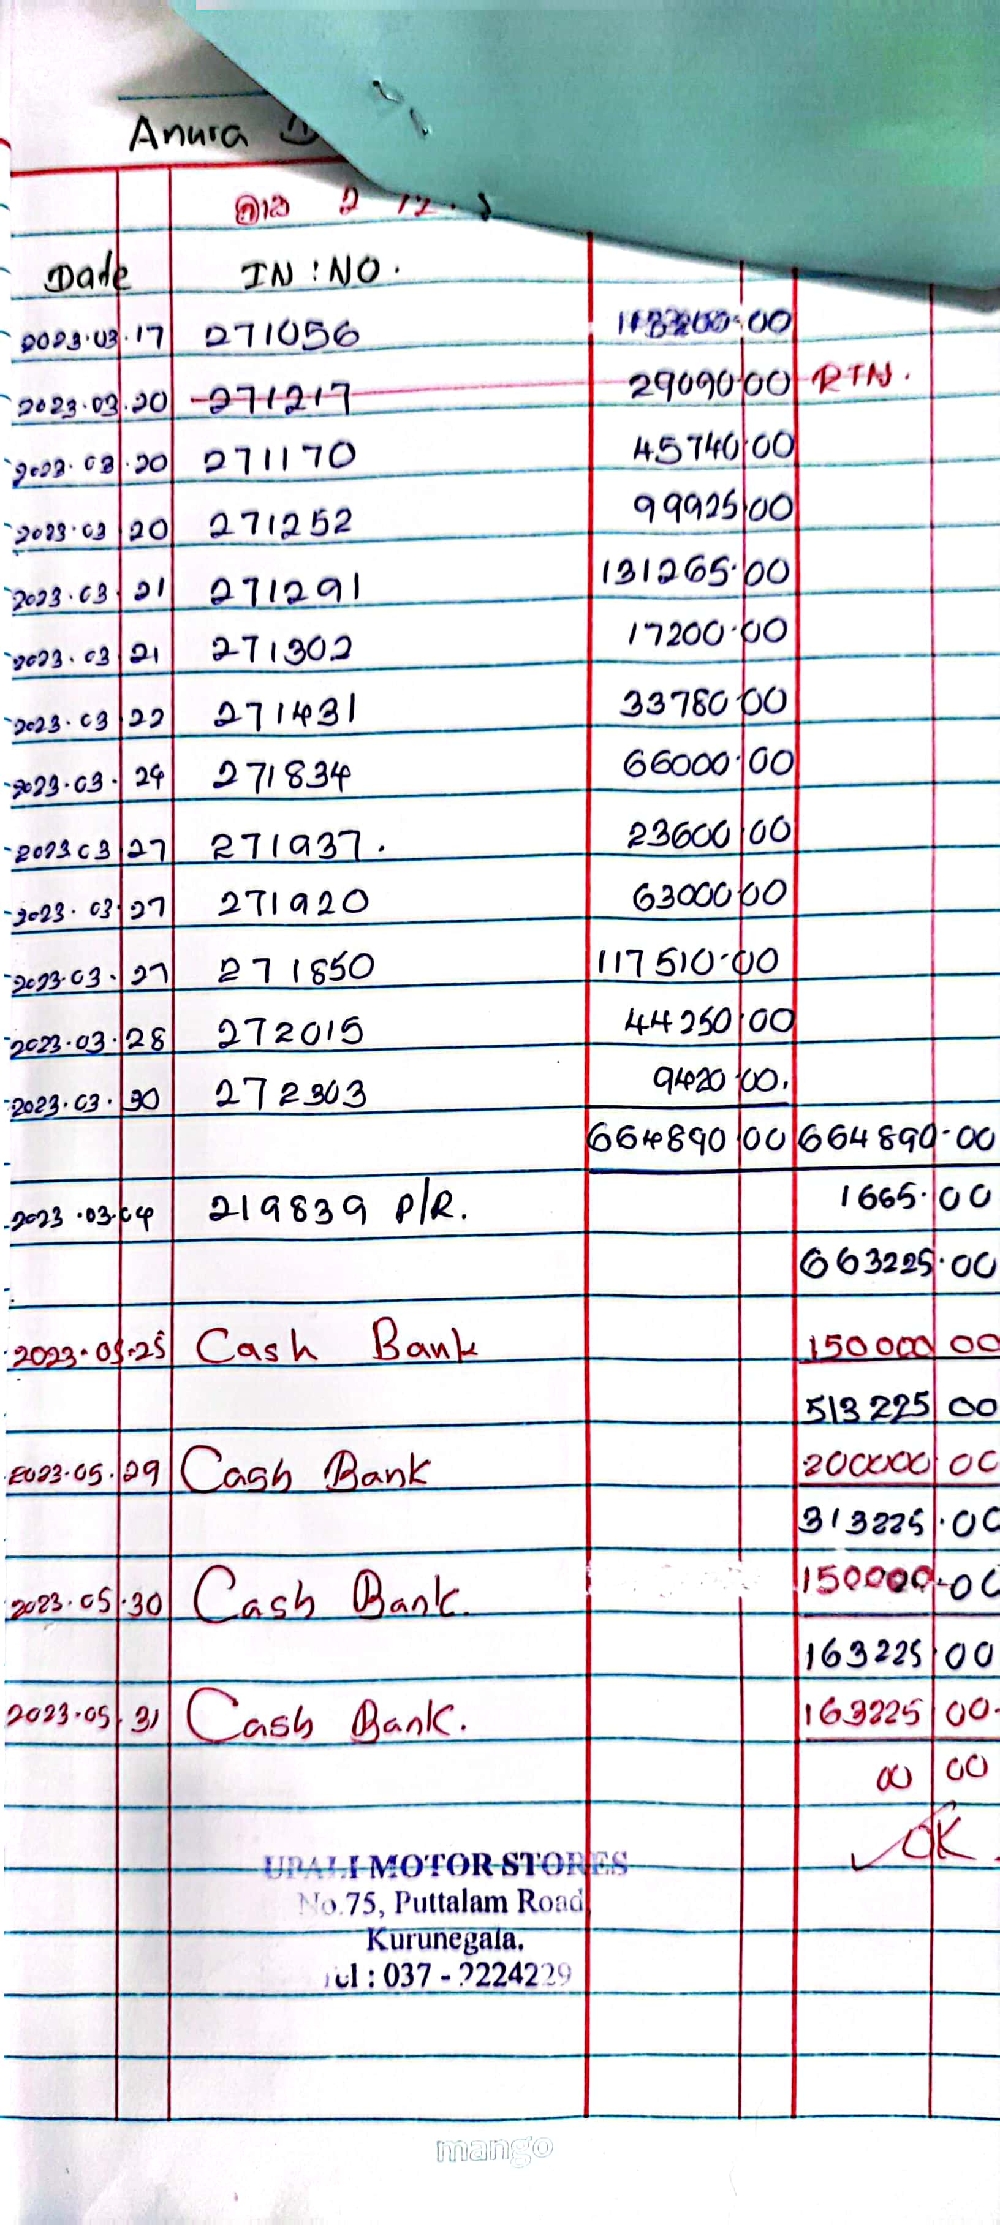 Anura
Date IN : NO.
2023.03.17 271056
2023.03.20 271217 29090 00 RTN.
2023.03.20 271170 45740.00
2023.03 20 271252 99925.00
2023.03 21 271291 131265.00
2023.03 21 271302 17200.00
2023.03 22 271431 33780 00
2023.03. 24 271834 66000.00
2023 03 27 271937. 23600 00
2023.03 27 271920 63000 00
2023.03. 27 271850 117510.00
2023.03.28 272015 44250 00
2023.03. 30 272303 9420 00.
664890 00 664890.00
2023.03.04 219839 P/R. 1665.00
663225.00
2023.05.25 Cash Bank 150000 00
513225 00
2023.05.29 Cash Bank 200000 00
313225.00
2023.05.30 Cash Bank. 150000.00
163225.00
2023.05.31 Cash Bank. 163225 00.
00 00
OK.
UPALI MOTOR STORES
No.75, Puttalam Road
Kurunegala.
Tel : 037 - 2224229
mango